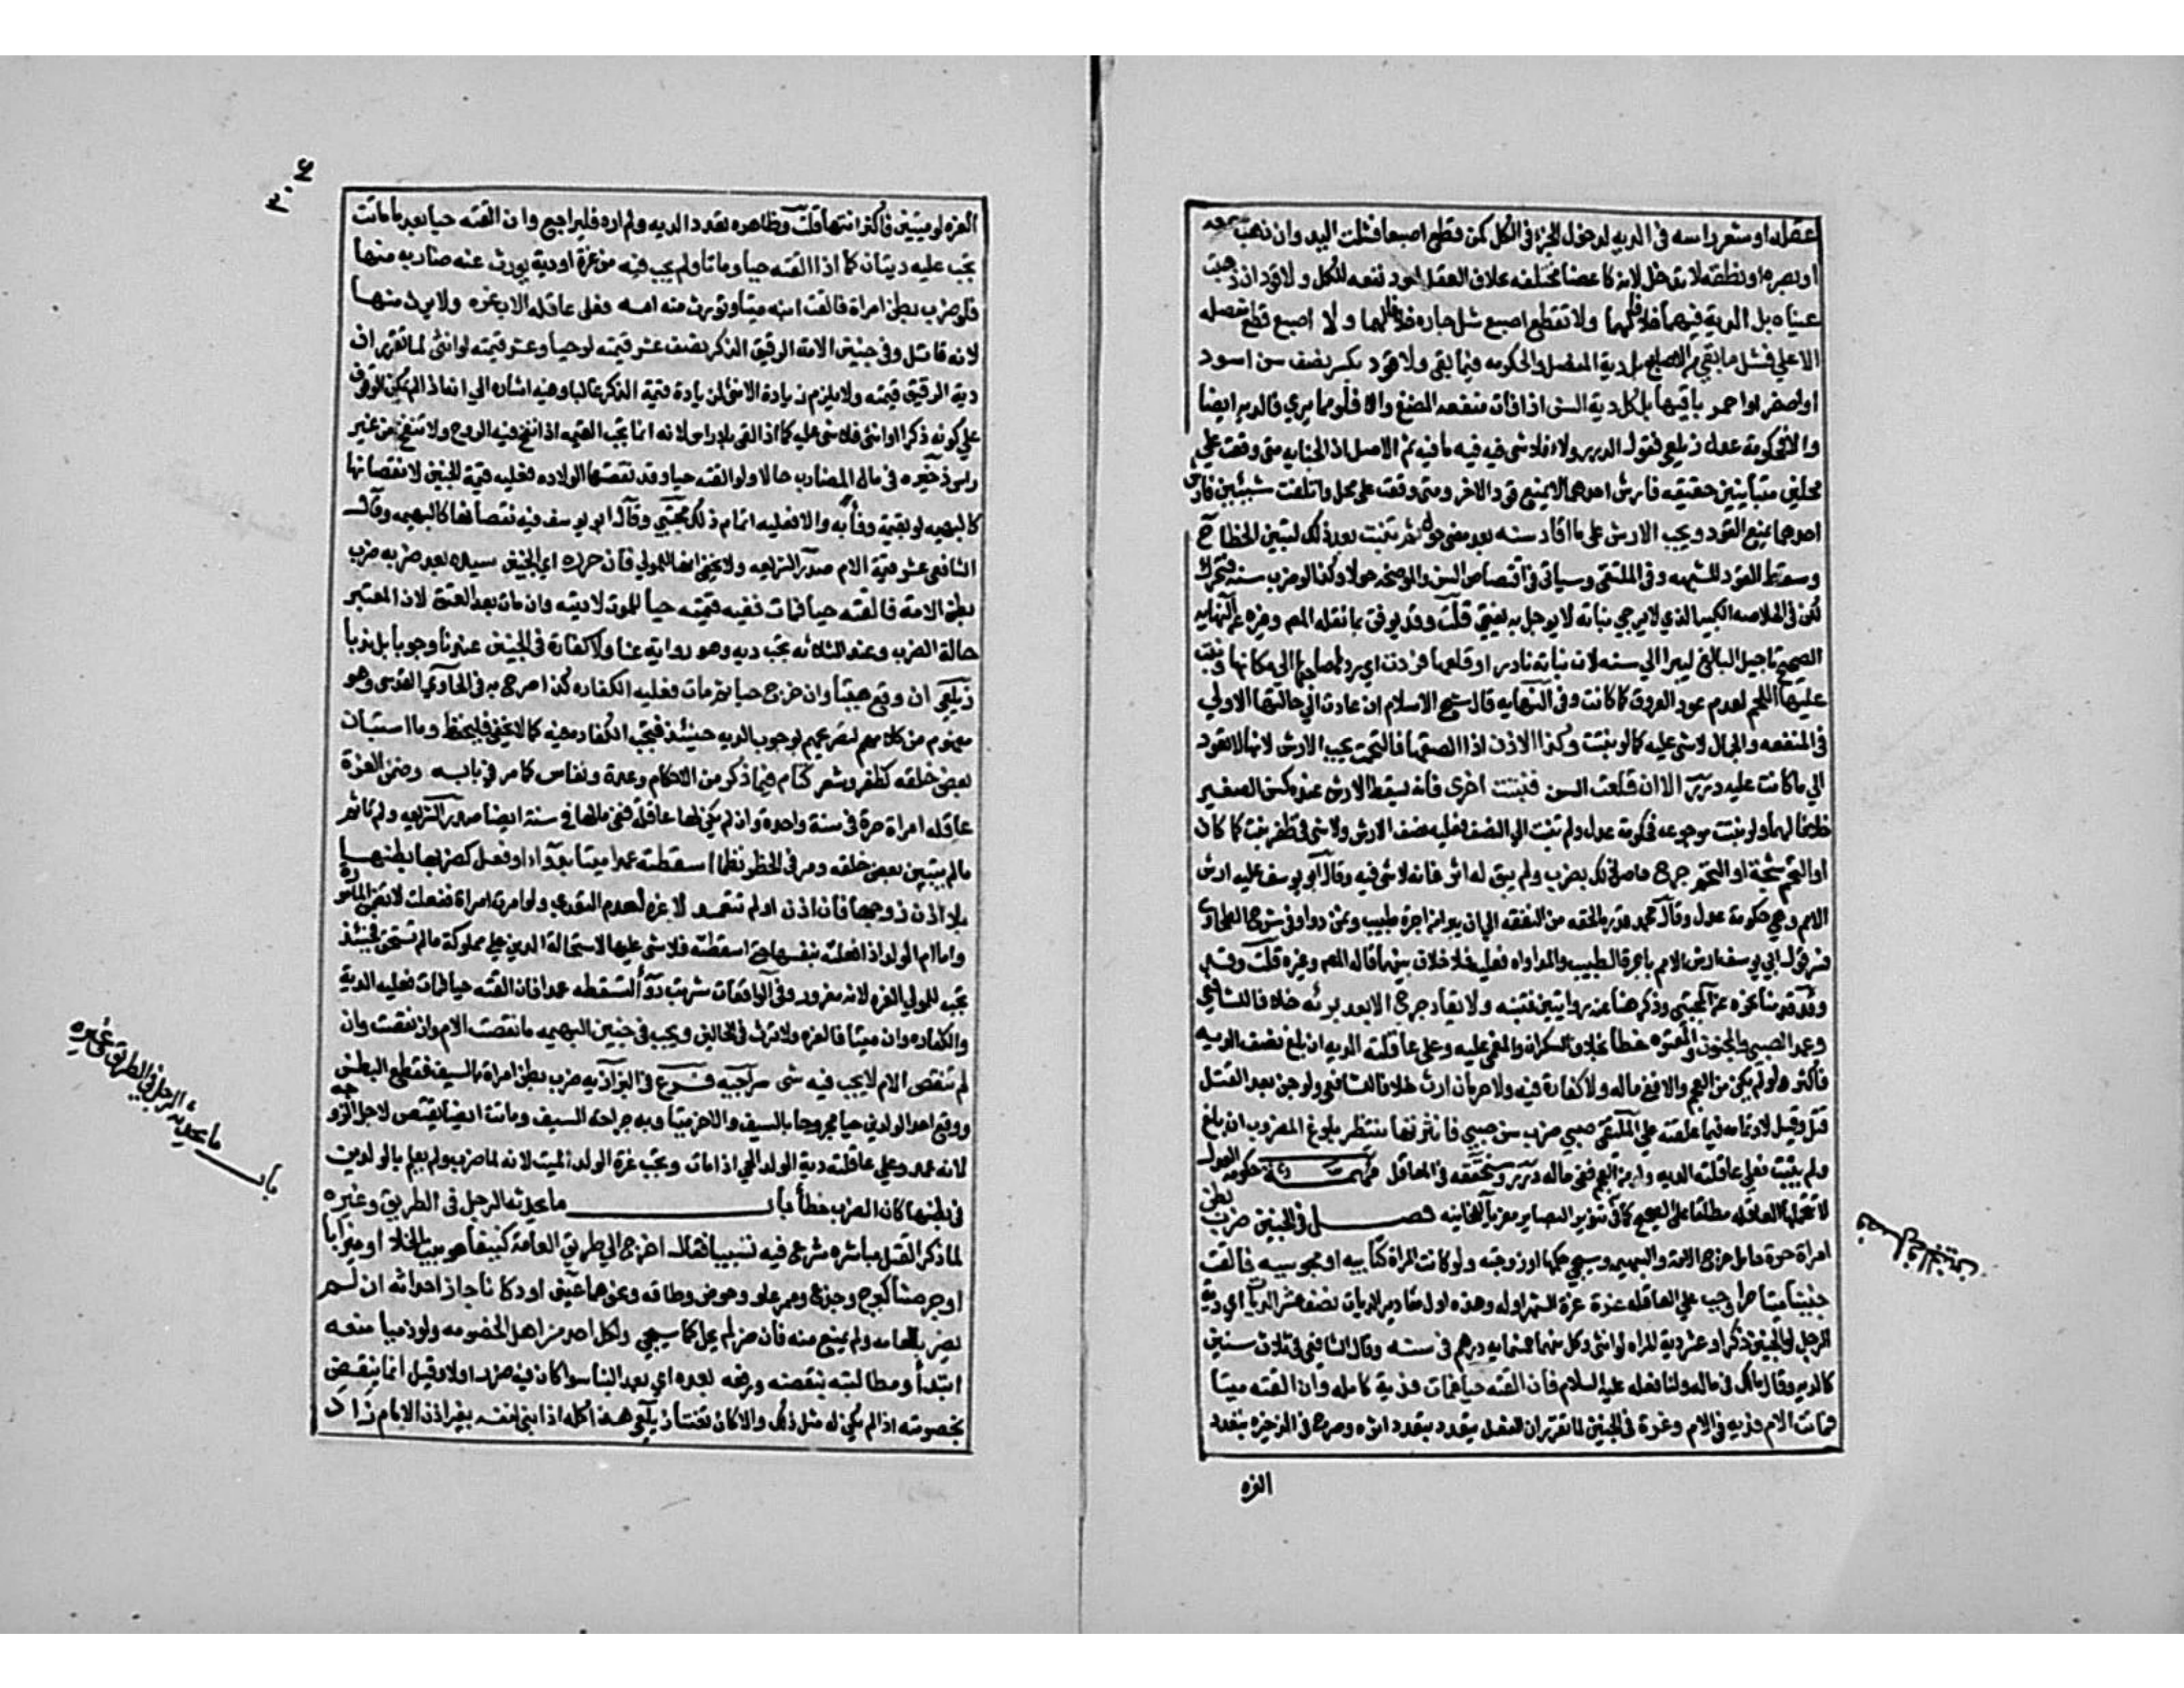 عقله او شعر راسه في الديه لدخول الجزء في الكل كمن قطع اصبعا فشلت اليد وان ذهب سمعه
او بصره او نطقه لا يدخل لانه كاعضا مختلفه بخلاف العقل لعود نفعه للكل ولا قود ان ذهبت
عيناه بل الدية فيهما خلافا لهما ولا تقطع اصبع شل جاره خلافا لهما ولا اصبع قطع مفصله
الاعلي فشل ما بقي من الاصابع بل دية المفصل والحكومه فيما بقي ولا قود بكسر نصف سن اسود
او اصفر او احمر باقيها بل كل دية السن اذا فات منفعه المضغ والا فلو مما يري فالديه ايضا
والا فحكومة عدل زيلعي فقول الدرر ولا فلا شي فيه فيه ما فيه ثم الاصل ان الجنايه متي وقعت علي
محلين متباينين حقيقه فارش احدهما لا يمنع قود الاخر ومتي وقعت علي محل واتلفت شيئين فارش
احدهما يمنع القود ويجب الارش علي ما اقاد سنه بعد مضي حول ثم نبتت بعد ذلك لتبين الخطا ح
وسقط القود للشبهه وفي الملتقي وسياتي في اقتصاص السن والموضحه حولا وكذا لو ضرب سنه فتحرك
لكن في الخلاصه الكبير الذي لا يرجي نباته لا يوجل به يفتي قلت وقد يوفق بما نقله المص وغيره عن النهايه
الصحيح تاجيل البالغ ليبرا الي سنه لان نباته نادر او قلعها فردت اي ردها صاحبها الي مكانها ونبت
عليها اللحم لعدم عود العروق كما كانت وفي النهايه قال شيخ الاسلام ان عادت الي حالتها الاولي
في المنفعه والجمال لا شي عليه كما لو نبتت وكذا الاذن اذا الصقها فالتحمت يجب الارش لانها لا تعود
الي ما كانت عليه درر الا ان قلعت السن فنبتت اخري فانه يسقط الارش عنده كسن الصغير
خلافا لهما ولو نبتت معوجه فحكومة عدل ولو نبت الي النصف فعليه نصف الارش ولا شي في ظفر نبت كما كان
او التحم شجة او التحم جرح حاصل كل بضرب ولم يبق له اثر فانه لا شي فيه وقال ابو يوسف عليه ارش
الالم وهي حكومة عدل وقال محمد قدر ما لحقه من النفقه الي ان يبرا من اجرة طبيب وثمن دوا وفي شرح الطحاوي
فسر قول ابي يوسف ارش الالم باجرة الطبيب والمداواه فعليه فلا خلاف بينهما قاله المص وغيره قلت وقد
وقد قدمنا نحوه عن المجتبي وذكر هنا عنه روايتين فتنبه ولا يقاد جرح الا بعد برئه خلافا للشافعي
وعمد الصبي والمجنون والمعتوه خطا بخلاف السكران والمغمي عليه وعلي عاقلته الديه ان بلغ نصف العشر
فاكثر ولو لم يكن من العجم والا ففي ماله ولا كفارة فيه ولا حرمان ارث خلافا للشافعي ولو جن بعد القتل
قتل وقيل لا وتمامه فيما علقته علي الملتقي صبي ضرب سن صبي فانتزعها ينتظر بلوغ المضروب ان بلغ
ولم ينبت فعلي عاقلته الديه ولو من العجم ففي ماله درر وسنحققه في المعاقل مهمه حكومة العدل
لا تتحملها العاقله مطلقا علي الصحيح كما في تنوير البصاير معزيا للخانيه فصل في الجنين ضرب بطن
امراة حرة حامل خرج الامة والبهيمه وسيجي حكمها او زوجته ولو كانت المراة كتابيه او مجوسيه فالقت
جنينا ميتا حرا وجب علي العاقله غرة غرة الشهر اوله وهذه اول مقادير الديات نصف عشر الديه اي دية
الرجل لو الجنين ذكرا وعشر دية المراه لو انثي وكل منهما خمسمايه درهم في سنه وقال الشافعي في ثلاث سنين
كالديه وقال مالك في ماله ولنا فعله عليه السلام فان القته حيا فمات فدية كامله وان القته ميتا
فماتت الام فديه في الام وغرة في الجنين لما تقرر ان الفعل يتعدد بتعدد اثره وصرح في الذخيره بتعدد
الغره
فصل في الجنين
٣٠٤
الغره لو ميتين فاكثر انتهي قلت وظاهره تعدد الديه ولم اره فليراجع وان القته حيا بعد ما ماتت
يجب عليه ديتان كما اذا القته حيا وماتا ولم يجب فيه من غرة او دية يورث عنه ضاربه منها
فلو ضرب بطن امراة فالقت ابنه ميتا وتورث منه امه فعلي عاقلة الاب غره ولا يرث منها
لانه قاتل وفي جنين الامة الرقيق الذكر نصف عشر قيمته لو حيا وعشر قيمته لو انثي لما تقرر ان
دية الرقيق قيمته ولا يلزم زيادة الانثي لزيادة قيمة الذكر غالبا وفيه اشاره الي انه اذا لم يمكن الوقوف
علي كونه ذكرا او انثي فلا شي عليه كما اذا القي بلا راس لانه انما تجب القيمه اذا نفخ فيه الروح ولا تنفخ من غير
راس ذخيره في مال الضارب حالا ولو القته حيا وقد نقصتها الولاده فعليه قيمة الجنين لا نقصانها
كالبهيمه لو بقيمته وفا به والا فعليه اتمام ذلك مجتبي وقال ابو يوسف فيه نقصانها كالبهيمه وقال
الشافعي عشر قيمة الام صدر الشريعه ولا يخفي انها للمولي فان حرره اي الجنين سيده بعد ضربه ضرب
بطن الامة فالقته حيا فمات ففيه قيمته حيا للمولي لا ديته وان مات بعد العتق لان المعتبر
حالة الضرب وعند الثلاثه تجب ديه وهو رواية عنا ولا كفارة في الجنين عندنا وجوبا بل ندبا
زيلعي ان وقع ميتا وان خرج حيا ثم مات فعليه الكفاره كذا صرح به في الحاوي القدسي وهو
مفهوم من كلامهم لتصريحهم بوجوب الديه حينئذ فتجب الكفاره فيه كما لا يخفي فليحفظ وما استبان
بعض خلقه كظفر وشعر كتام فيما ذكر من الاحكام وعدة ونفاس كما مر في بابه وضمن الغرة
عاقله امراة حرة في سنة واحدة وان لم يكن لها عاقلة ففي مالها في سنة ايضا صدر الشريعه ولم تاثم
ما لم يتبين بعض خلقه ومر في الحظر نظما اسقطته عمدا ميتا بدوا او فعل كضربها بطنها
بلا اذن زوجها فان اذن او لم تتعمد لا غرة لعدم التعدي ولو امرت امراة ففعلت لا تضمن المامورة
واما ام الولد اذا فعلته بنفسها حتي اسقطته فلا شي عليها لاستحالة الدين علي مملوكه ما لم تستحق فحينئذ
تجب للمولي الغره لانه مغرور وفي الواقعات شربت دوا لتسقطه عمدا فان القته حيا فمات فعليه الدية
والكفاره وان ميتا فالغره ولا ترث في الحالين ويجب في جنين البهيمه ما نقصت الام وان نقصت وان
لم تنقص الام لا يجب فيه شي سراجيه فرع في البزازيه ضرب بطن امراة بالسيف فقطع البطن
ووقع احد الولدين حيا مجروحا بالسيف والاخر ميتا وبه جراحة السيف وماتت ايضا يقتص لاجل الزوجه
لانه عمد وعلي عاقلته دية الولد الحي اذا مات وتجب غرة الولد الميت لانه لما ضرب ولم يعلم بالولدين
في بطنها كان الضرب خطا باب ما يحدثه الرجل في الطريق وغيره
لما ذكر القتل مباشره شرع فيه تسببا فقال اخرج الي طريق العامة كنيفا هو بيت الخلا او ميزابا
او جرصنا كبرج وجذع وممر علو وحوض وطاقه ونحوهما عيني او دكانا جاز احداثه ان لم
يضر بالعامه ولم يمنع منه فان ضر لم يحل كما سيجي ولكل احد من اهل الخصومه ولو ذميا منعه
ابتدا ومطالبته بنقضه ورفعه بعده اي بعد البنا سوا كان فيه ضرر او لا وقيل انما ينقض
بخصومته اذا لم يكن له مثل ذلك والا كان تعنتا زيلعي هذا كله اذا بني لنفسه بغير اذن الامام زاد
باب ما يحدثه الرجل في الطريق وغيره